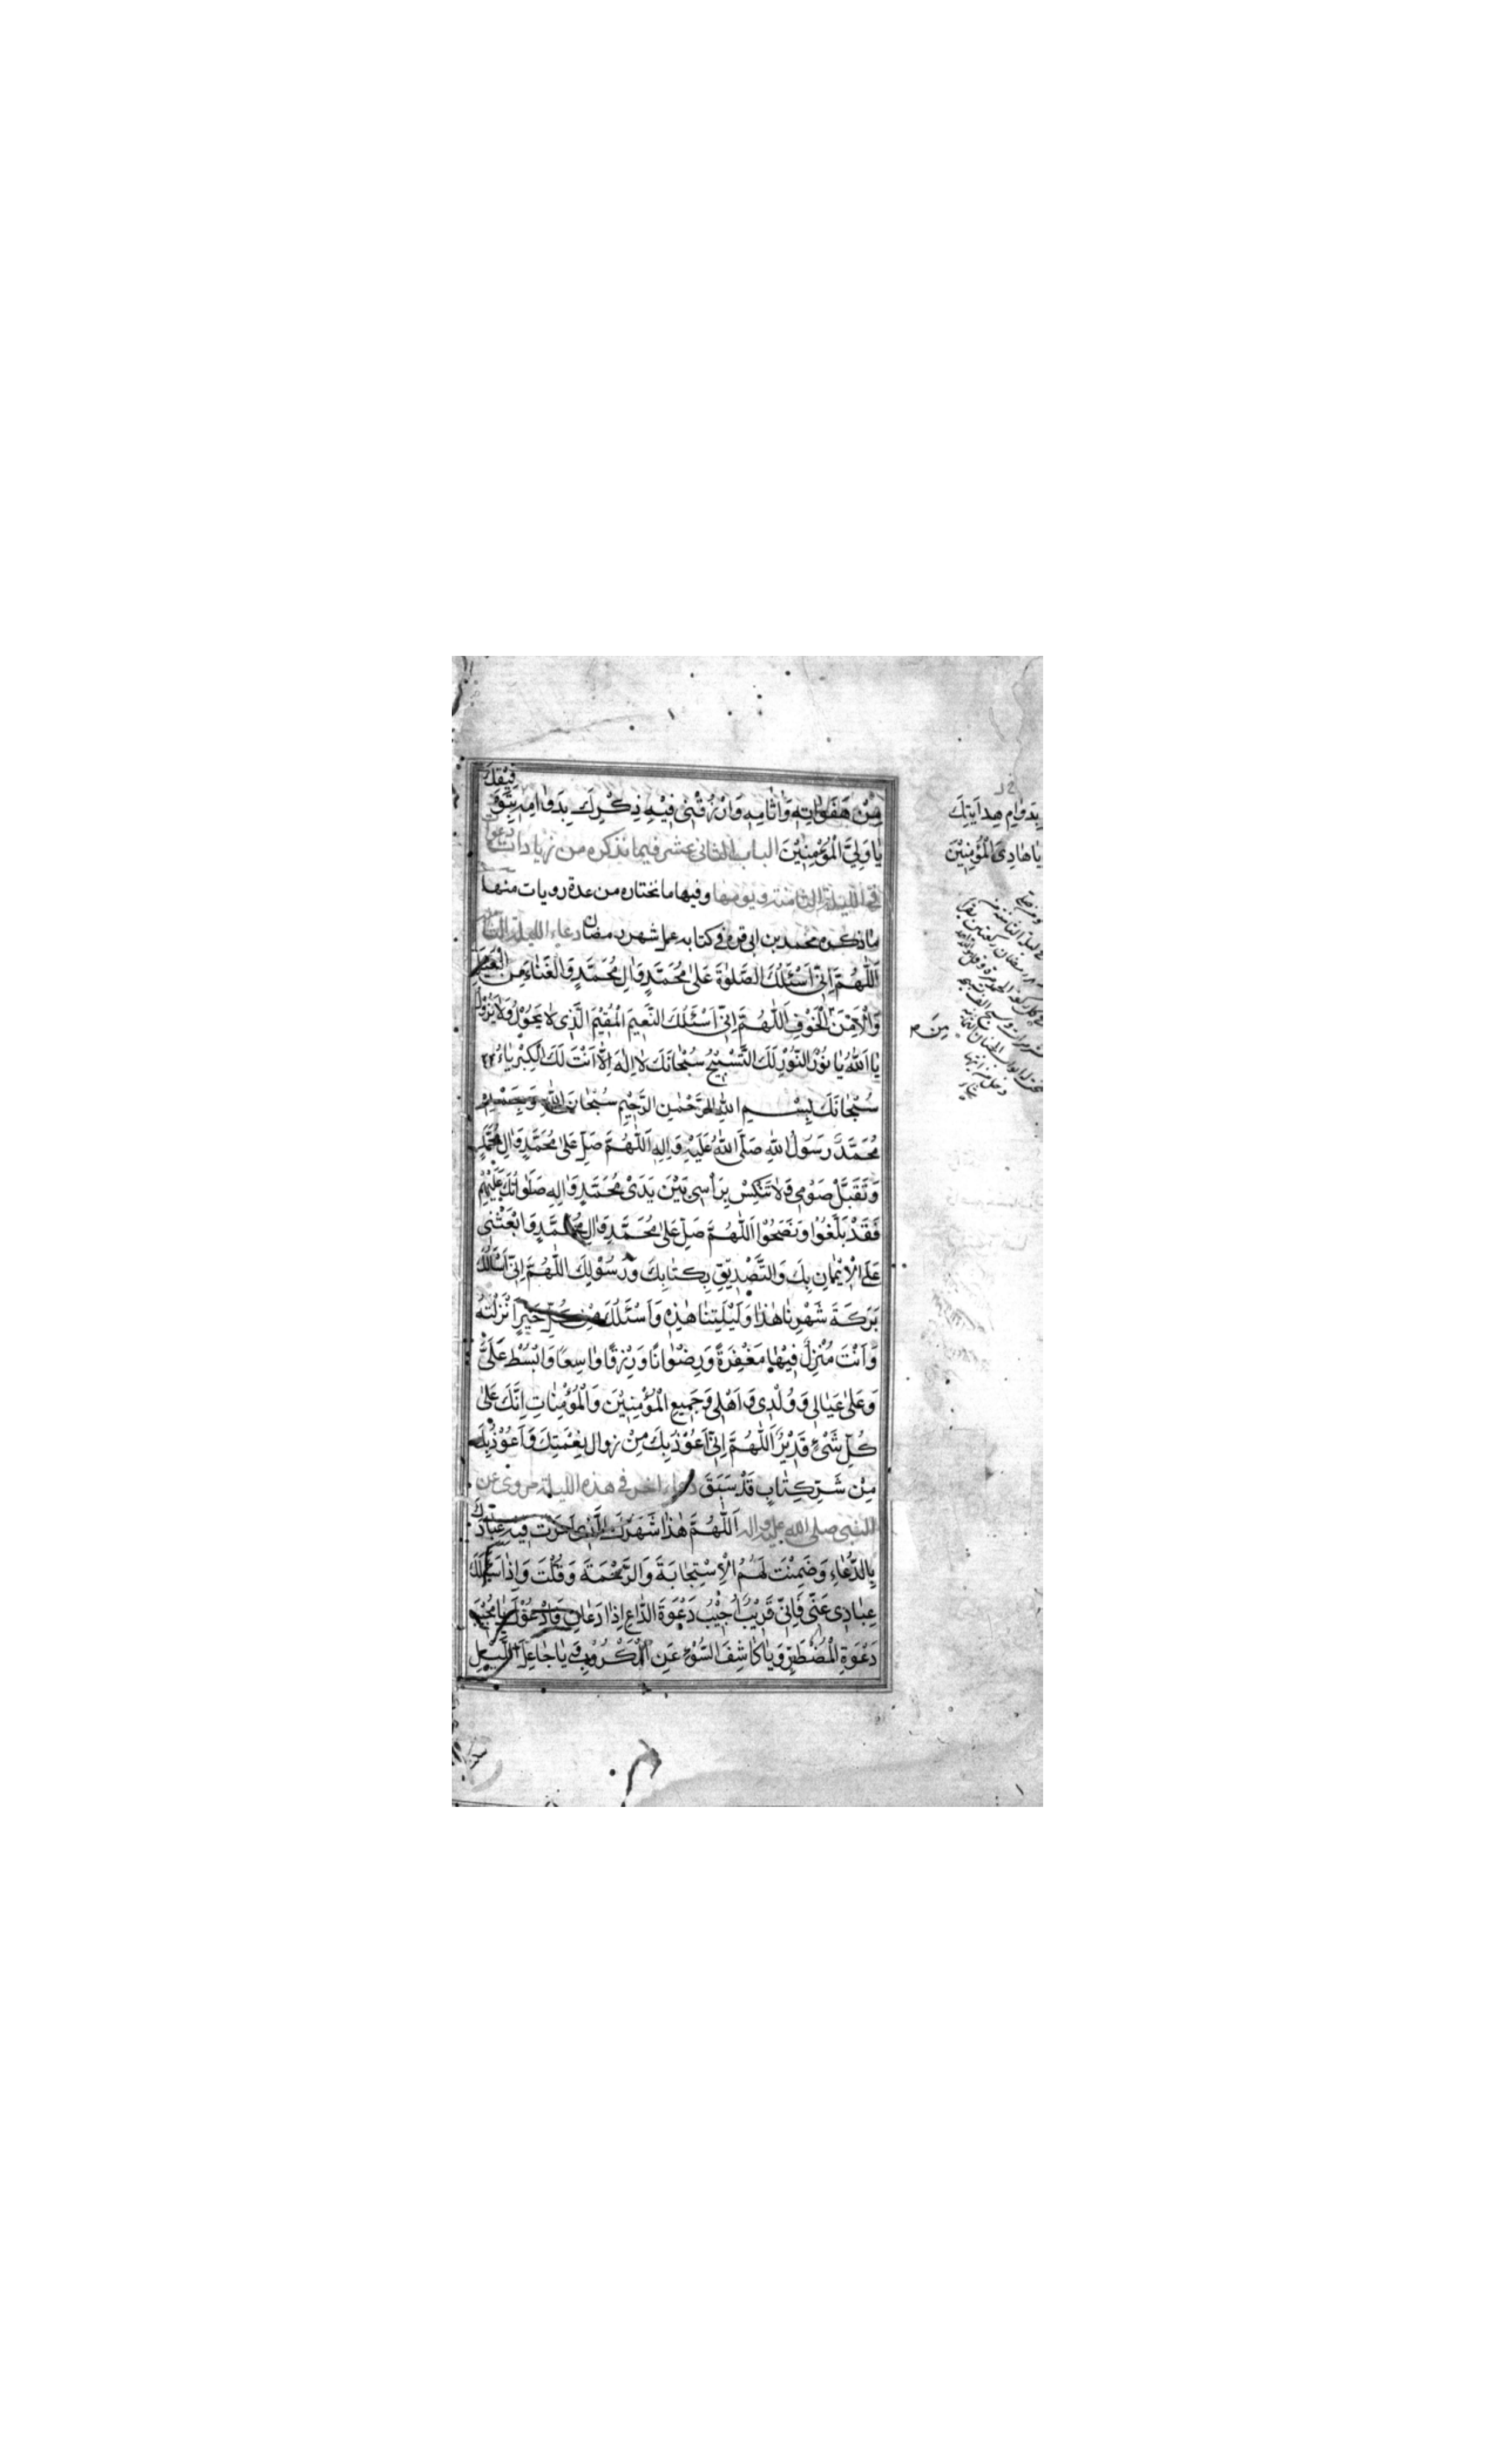 مِنْ هَفَوٰاتِهِ وَاٰثٰامِهِ وَارْزُقْنى فيٖهِ ذِكْرَكَ بِدَوٰامِهِ بِتَوْفيٖقِكَ
يٰا وَلِيَّ الْمُؤْمِنيٖنَ الباب الثانى عشر فيما نذكره من زيادات دعوات
فى الليلة الثامنة ويومها وفيها ما نختاره من عدة رويات منها
ما ذكره محمد بن ابى قره فى كتابه عمل شهر رمضان دعاء الليلة الثامنة
اَللّٰهُمَّ اِنّىٖ اَسْئَلُكَ الصَّلوٰةَ عَلىٰ مُحَمَّدٍ وَاٰلِ مُحَمَّدٍ وَالْغَناءَ مِنَ الْعَيْلَةِ
وَالْاَمْنَ الْخَوْفِ اَللّٰهُمَّ اِنّىٖ اَسْئَلُكَ النَّعيٖمَ الْمُقيٖمَ الَّذى لٰا يَحُوْلُ وَلٰا يَزُوْلُ
يٰا اَللّٰهُ يٰا نُوْرَ النُّوْرِ لَكَ التَّسْبيٖحُ سُبْحٰانَكَ لٰا اِلٰهَ اِلّٰا اَنْتَ لَكَ الْكِبْرِيٰاءُ
سُبْحٰانَكَ بِسْمِ اللّٰهِ الرَّحْمٰنِ الرَّحيٖمِ سُبْحٰانَ اللّٰهِ وَبِحَمْدِهِ
مُحَمَّدٌ رَسُوْلُ اللّٰهِ صَلَّى اللّٰهُ عَلَيْهِ وَاٰلِهِ اَللّٰهُمَّ صَلِّ عَلىٰ مُحَمَّدٍ وَاٰلِ مُحَمَّدٍ
وَتَقَبَّلْ صَوْمى وَلٰا تَنْكِسْ بِرَأْسى بَيْنَ يَدَىْ مُحَمَّدٍ وَاٰلِهِ صَلَوٰاتُكَ عَلَيْهِمْ
فَقَدْ بَلَّغُوْا وَنَصَحُوْا اَللّٰهُمَّ صَلِّ عَلىٰ مُحَمَّدٍ وَاٰلِ مُحَمَّدٍ وَابْعَثْنى
عَلَى الْاٖيمٰانِ بِكَ وَالتَّصْديٖقِ بِكِتٰابِكَ وَرَسُوْلِكَ اَللّٰهُمَّ اِنّىٖ اَسْأَلُكَ
بَرَكَةَ شَهْرِنٰا هٰذٰا وَلَيْلَتِنٰا هٰذِهِ وَاَسْئَلُكَ مِنْ كُلِّ خَيْرٍ اَنْزَلْتَهُ
وَاَنْتَ مُنْزِلٌ فيٖهٰا مَغْفِرَةً وَرِضْوٰانًا وَرِزْقًا وٰاسِعًا وَابْسُطْ عَلَىَّ
وَعَلىٰ عَيٰالى وَوُلْدى وَاَهْلى وَجَميٖعِ الْمُؤْمِنيٖنَ وَالْمُؤْمِنٰاتِ اِنَّكَ عَلىٰ
كُلِّ شَىْءٍ قَديٖرٌ اَللّٰهُمَّ اِنّىٖ اَعُوْذُ بِكَ مِنْ زَوال نِعْمَتِكَ وَاَعُوْذُ بِكَ
مِنْ شَرِّ كِتٰابٍ قَدْ سَبَقَ دعاء اخر فى هذه الليلة مروى عن
النبى صلى الله عليه واله اَللّٰهُمَّ هٰذٰا شَهْرُكَ الَّذى اَمَرْتَ فيٖهِ عِبٰادَكَ
بِالدُّعٰاءِ وَضَمِنْتَ لَهُمُ الْاِسْتِجٰابَةَ وَالرَّحْمَةَ وَقُلْتَ وَاِذٰا سَأَلَكَ
عِبٰادى عَنّى فَاِنّى قَريٖبٌ اُجيٖبُ دَعْوَةَ الدّٰاعِ اِذٰا دَعٰانِ فَاَدْعُوْكَ يٰا مُجيٖبَ
دَعْوَةِ الْمُضْطَرّ وَيٰا كٰاشِفَ السُّوْءِ عَنِ الْمَكْرُوْبِ وَيٰا جٰاعِلَ اللَّيْلِ
بِدَوٰامِ هِدٰايَتِكَ
يٰا هٰادِىَ الْمُؤْمِنيٖنَ
مِنَ